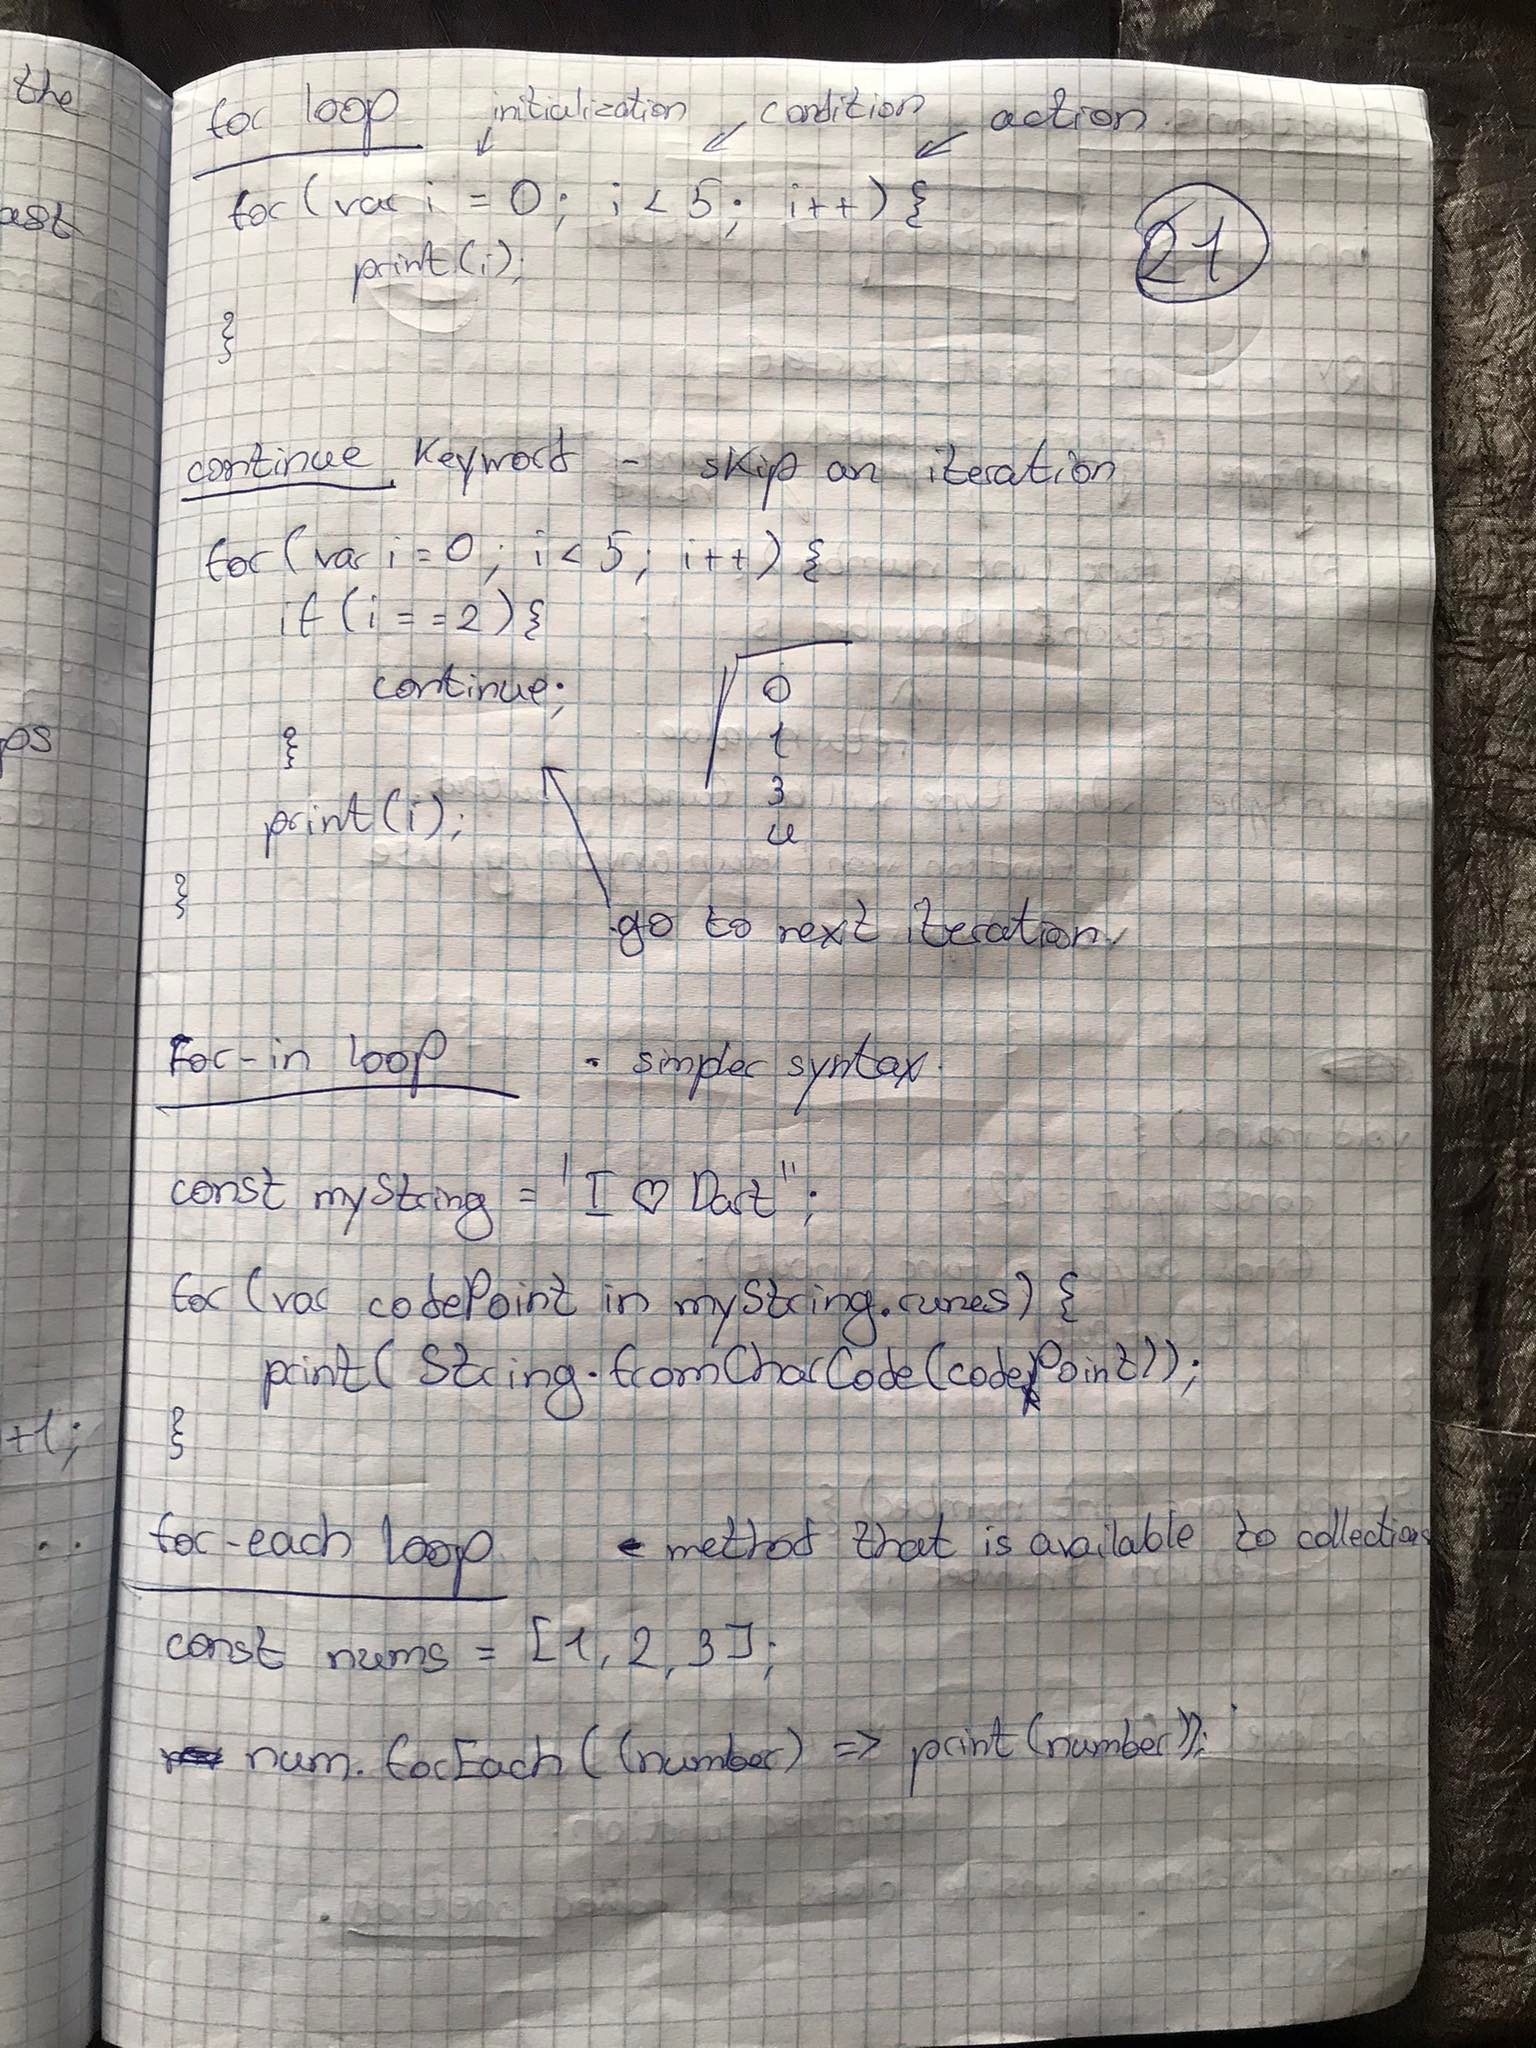 the
ast
ps
+1;
for loop initialization condition action
for (var i = 0; i < 5; i++) {
21
print(i);
}
continue keyword - skip an iteration
for (var i = 0; i < 5; i++) {
if (i == 2) {
continue;
0
1
}
3
print(i);
4
}
go to next iteration
for-in loop • simpler syntax.
const myString = 'I ♡ Dart";
for (var codePoint in myString.runes) {
print( String.fromCharCode(codePoint));
}
for-each loop - method that is available to collections
const nums = [1, 2, 3];
num.forEach((number) => print(number));